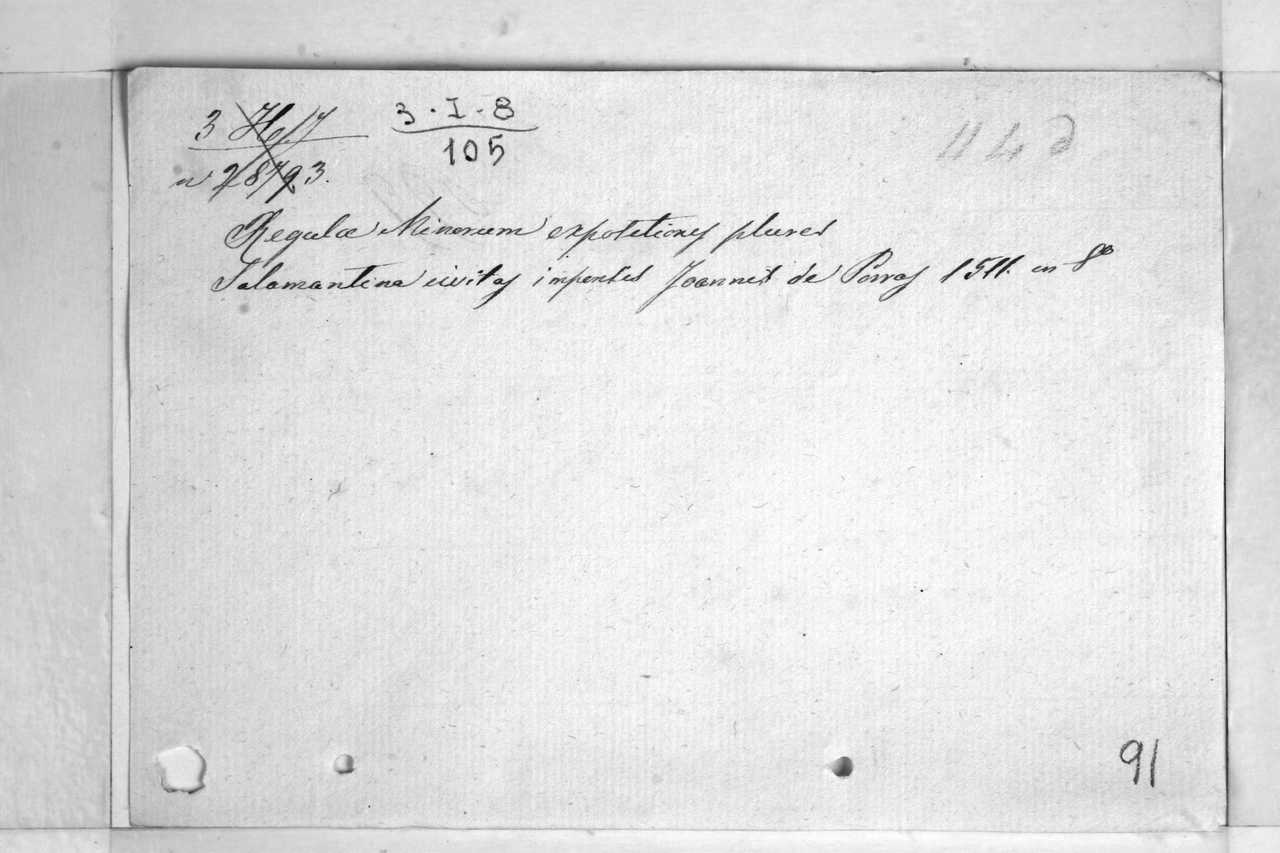 3 · I · 8
105
n 28793.
Regulæ Minorum expositiones plures
Salamantina civitas impensis Joannis de Porras 1511. en 8º
91